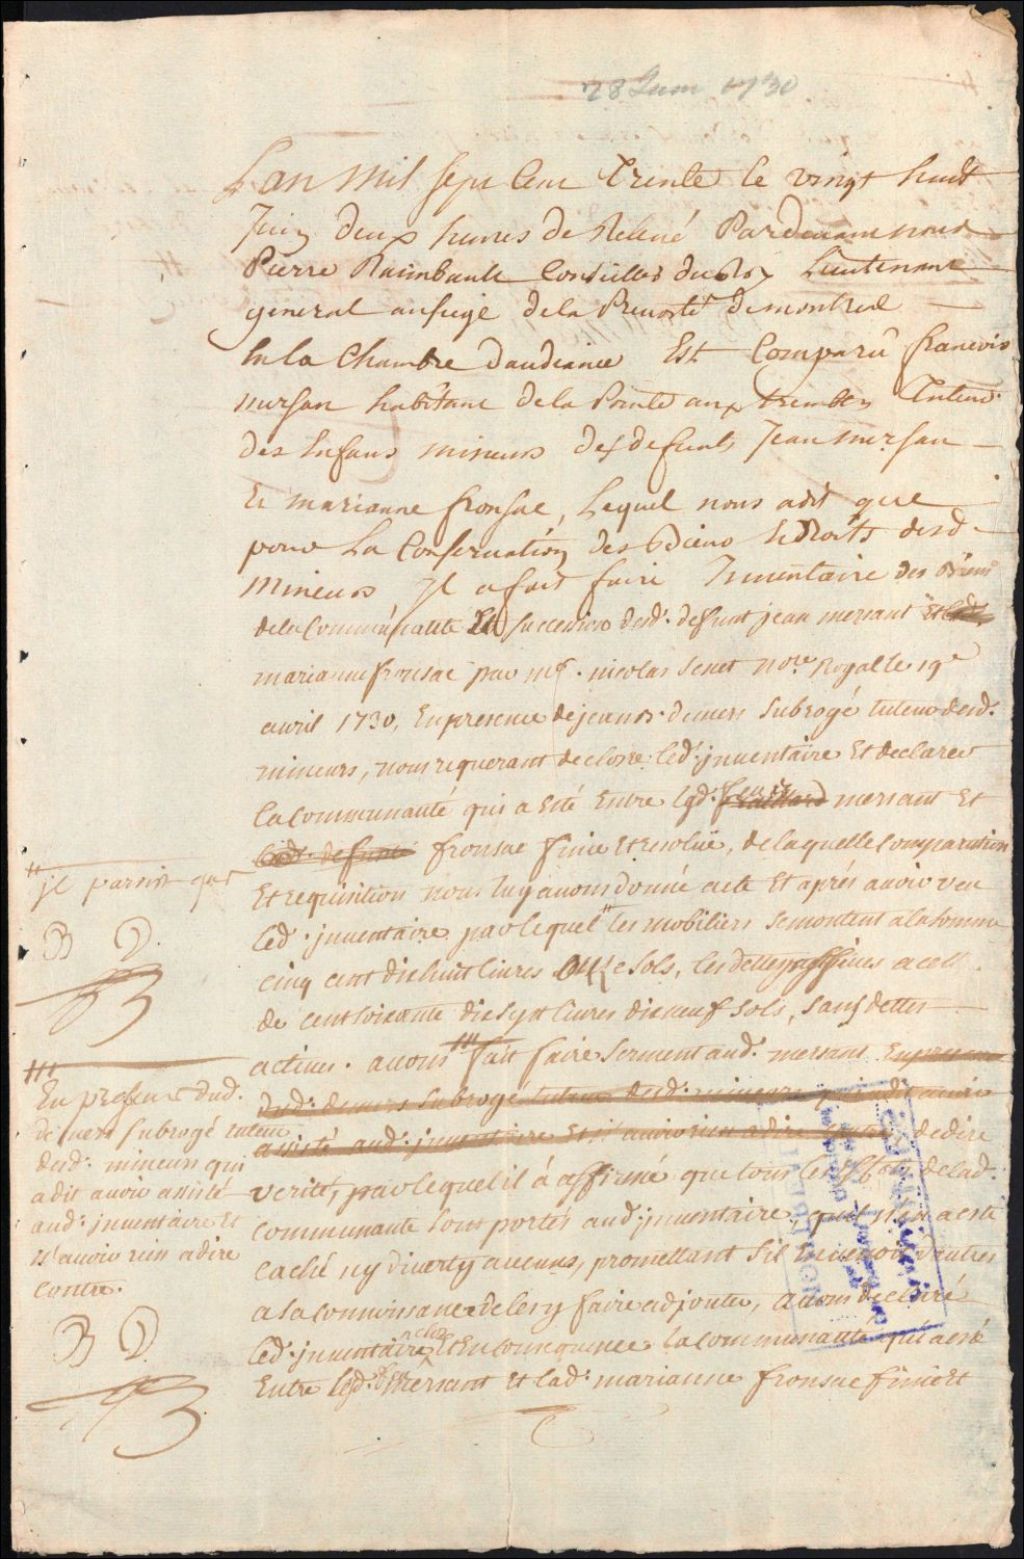 28 Juin 1730
L'an Mil sept Cent Trente le vingt huit
Juin deux heures de Relevé Pardevant nous
Pierre Raimbault Conseiller du Roy Lieutenant
general au siege de la Prevosté de montreal
En la Chambre d'audiance Est Comparu francois
mersan habitant de la Pointe aux trembles Tuteur
des Enfans mineurs des defunts Jean mersan
Et marianne fronsac, Lequel nous a dit que
pour La Conservation des Biens Et Droits desd.
Mineurs Il a fait faire Inventaire des Biens
de la Communauté Et succession dud. deffunt jean mersant Et
marianne fronsac par Me. nicolas senet nore. Royal le 19e
avril 1730, En presence de jean Bt. demers Subrogé tuteur desd.
mineurs, nous requerant de clorre led. jnventaire Et declarer
la Communauté qui a esté Entre led. feu mersant Et
lad. defunte fronsac finie Et resolüe, de laquelle Comparution
Et requisition nous luy avons donné acte Et aprés avoir veu
led. jnventaire par lequel " les mobiliers se montent a la somme
cinq cent dix huit livres onze sols, les dettes passives a celle
de cent soixante dix sept livres dix neuf sols, sans dettes
actives. avons ''' fait faire serment aud. mersant En presence
dud. demers subrogé tuteur desd. mineurs qui a dit avoir
assisté aud. jnventaire Et n'avoir rien a dire contre de dire
verité, par lequel il à affirmé que tous les Effets de lad.
communauté sont portés aud. jnventaire, qu'il n'en a esté
caché ny diverty aucuns, promettant s'il En venoit d'autres
a sa connoissance de les y faire adjouter, avons declaré
led. jnventaire clos Et En consequence la communauté qui a esté
Entre led. mersant Et lad. marianne fronsac finie Et
" jl paroist que
B D.
''' En presence dud.
demers subrogé tuteur
desd. mineurs qui
a dit avoir assisté
aud. jnventaire Et
n'avoir rien a dire
contre.
B D.